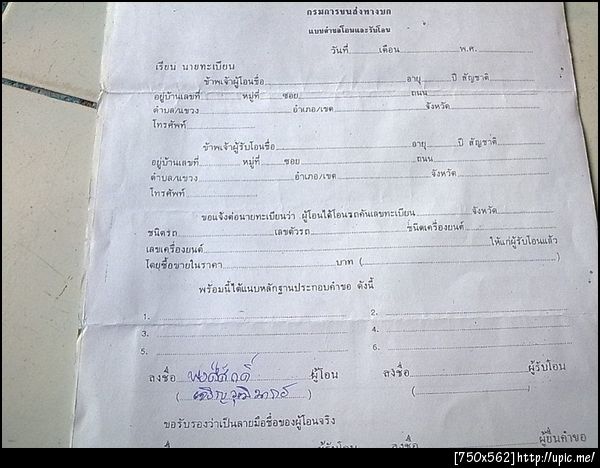 กรมการขนส่งทางบก
แบบคำขอโอนและรับโอน
วันที่............เดือน..................พ.ศ...............
เรียน นายทะเบียน
ข้าพเจ้าผู้โอนชื่อ..............................อายุ........ปี สัญชาติ............
อยู่บ้านเลขที่............หมู่ที่......ซอย..............................ถนน........................
ตำบล/แขวง..............................อำเภอ/เขต........................จังหวัด..................
โทรศัพท์........................
ข้าพเจ้าผู้รับโอนชื่อ..............................อายุ........ปี สัญชาติ............
อยู่บ้านเลขที่............หมู่ที่......ซอย..............................ถนน........................
ตำบล/แขวง........................อำเภอ/เขต........................จังหวัด..................
โทรศัพท์..................
ขอแจ้งต่อนายทะเบียนว่า ผู้โอนได้โอนรถคันเลขทะเบียน..................จังหวัด..................
ชนิดรถ........................เลขตัวรถ........................ชนิดเครื่องยนต์........................
เลขเครื่องยนต์..........................................ให้แก่ผู้รับโอนแล้ว
โดยซื้อขายในราคา........................บาท (..........................................)
พร้อมนี้ได้แนบหลักฐานประกอบคำขอ ดังนี้
1. .............................. 2. ..............................
3. .............................. 4. ..............................
5. .............................. 6. ..............................
ลงชื่อ พงศ์ศักดิ์ ผู้โอน ลงชื่อ..............................ผู้รับโอน
( ) (..............................)
ขอรับรองว่าเป็นลายมือชื่อของผู้โอนจริง
ผู้รับโอน ลงชื่อ ผู้ยื่นคำขอ
[750x562]http://upic.me/